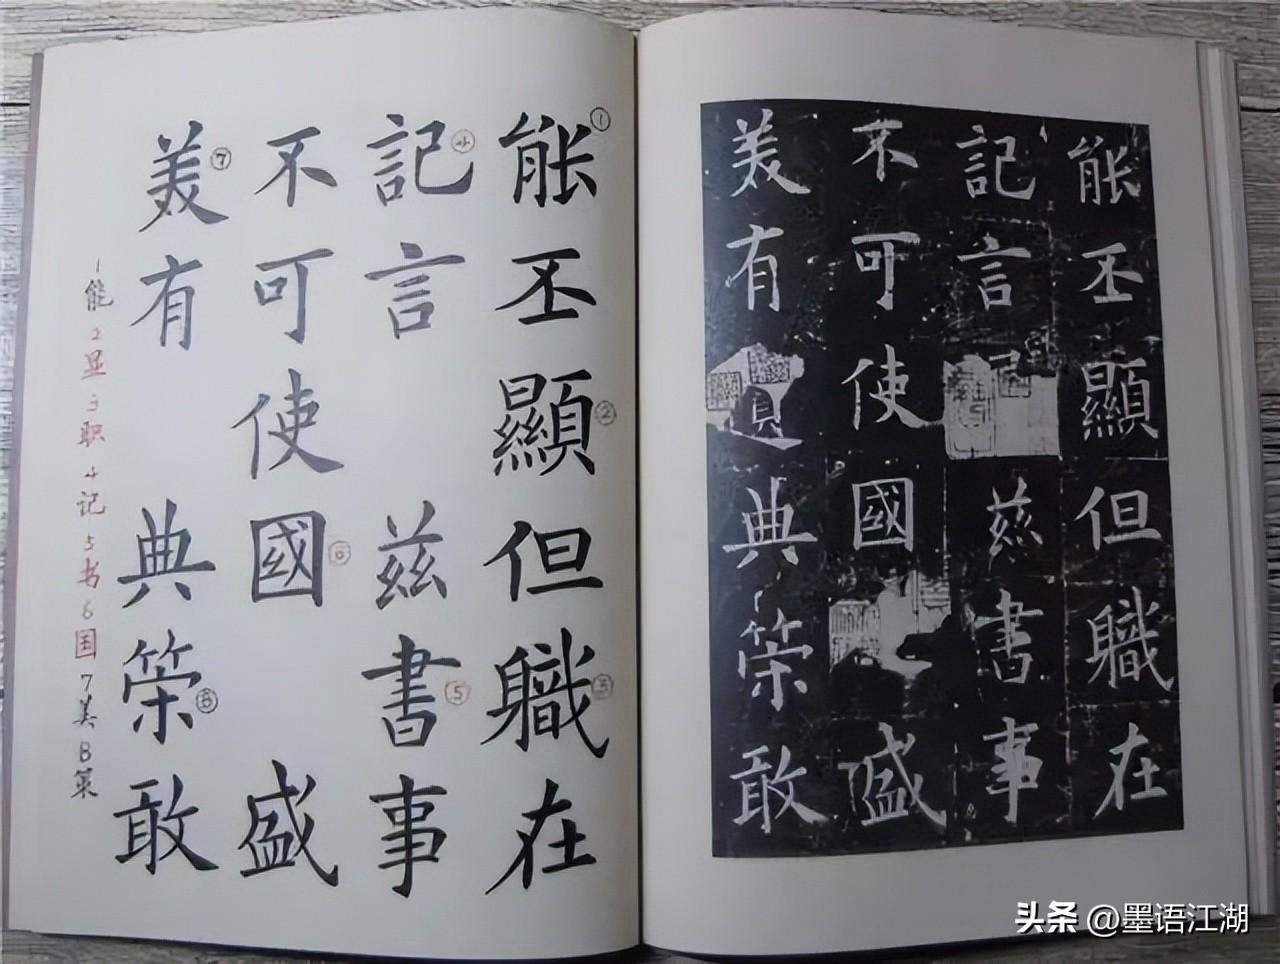 能①丕顯②但職③在
記④言兹書⑤事
不可使國⑥盛
美⑦有典策⑧敢
1能2显3职4记5书6国7美8策
能丕顯但職在
記言兹書事
不可使國盛
美有典策敢
头条 @墨语江湖